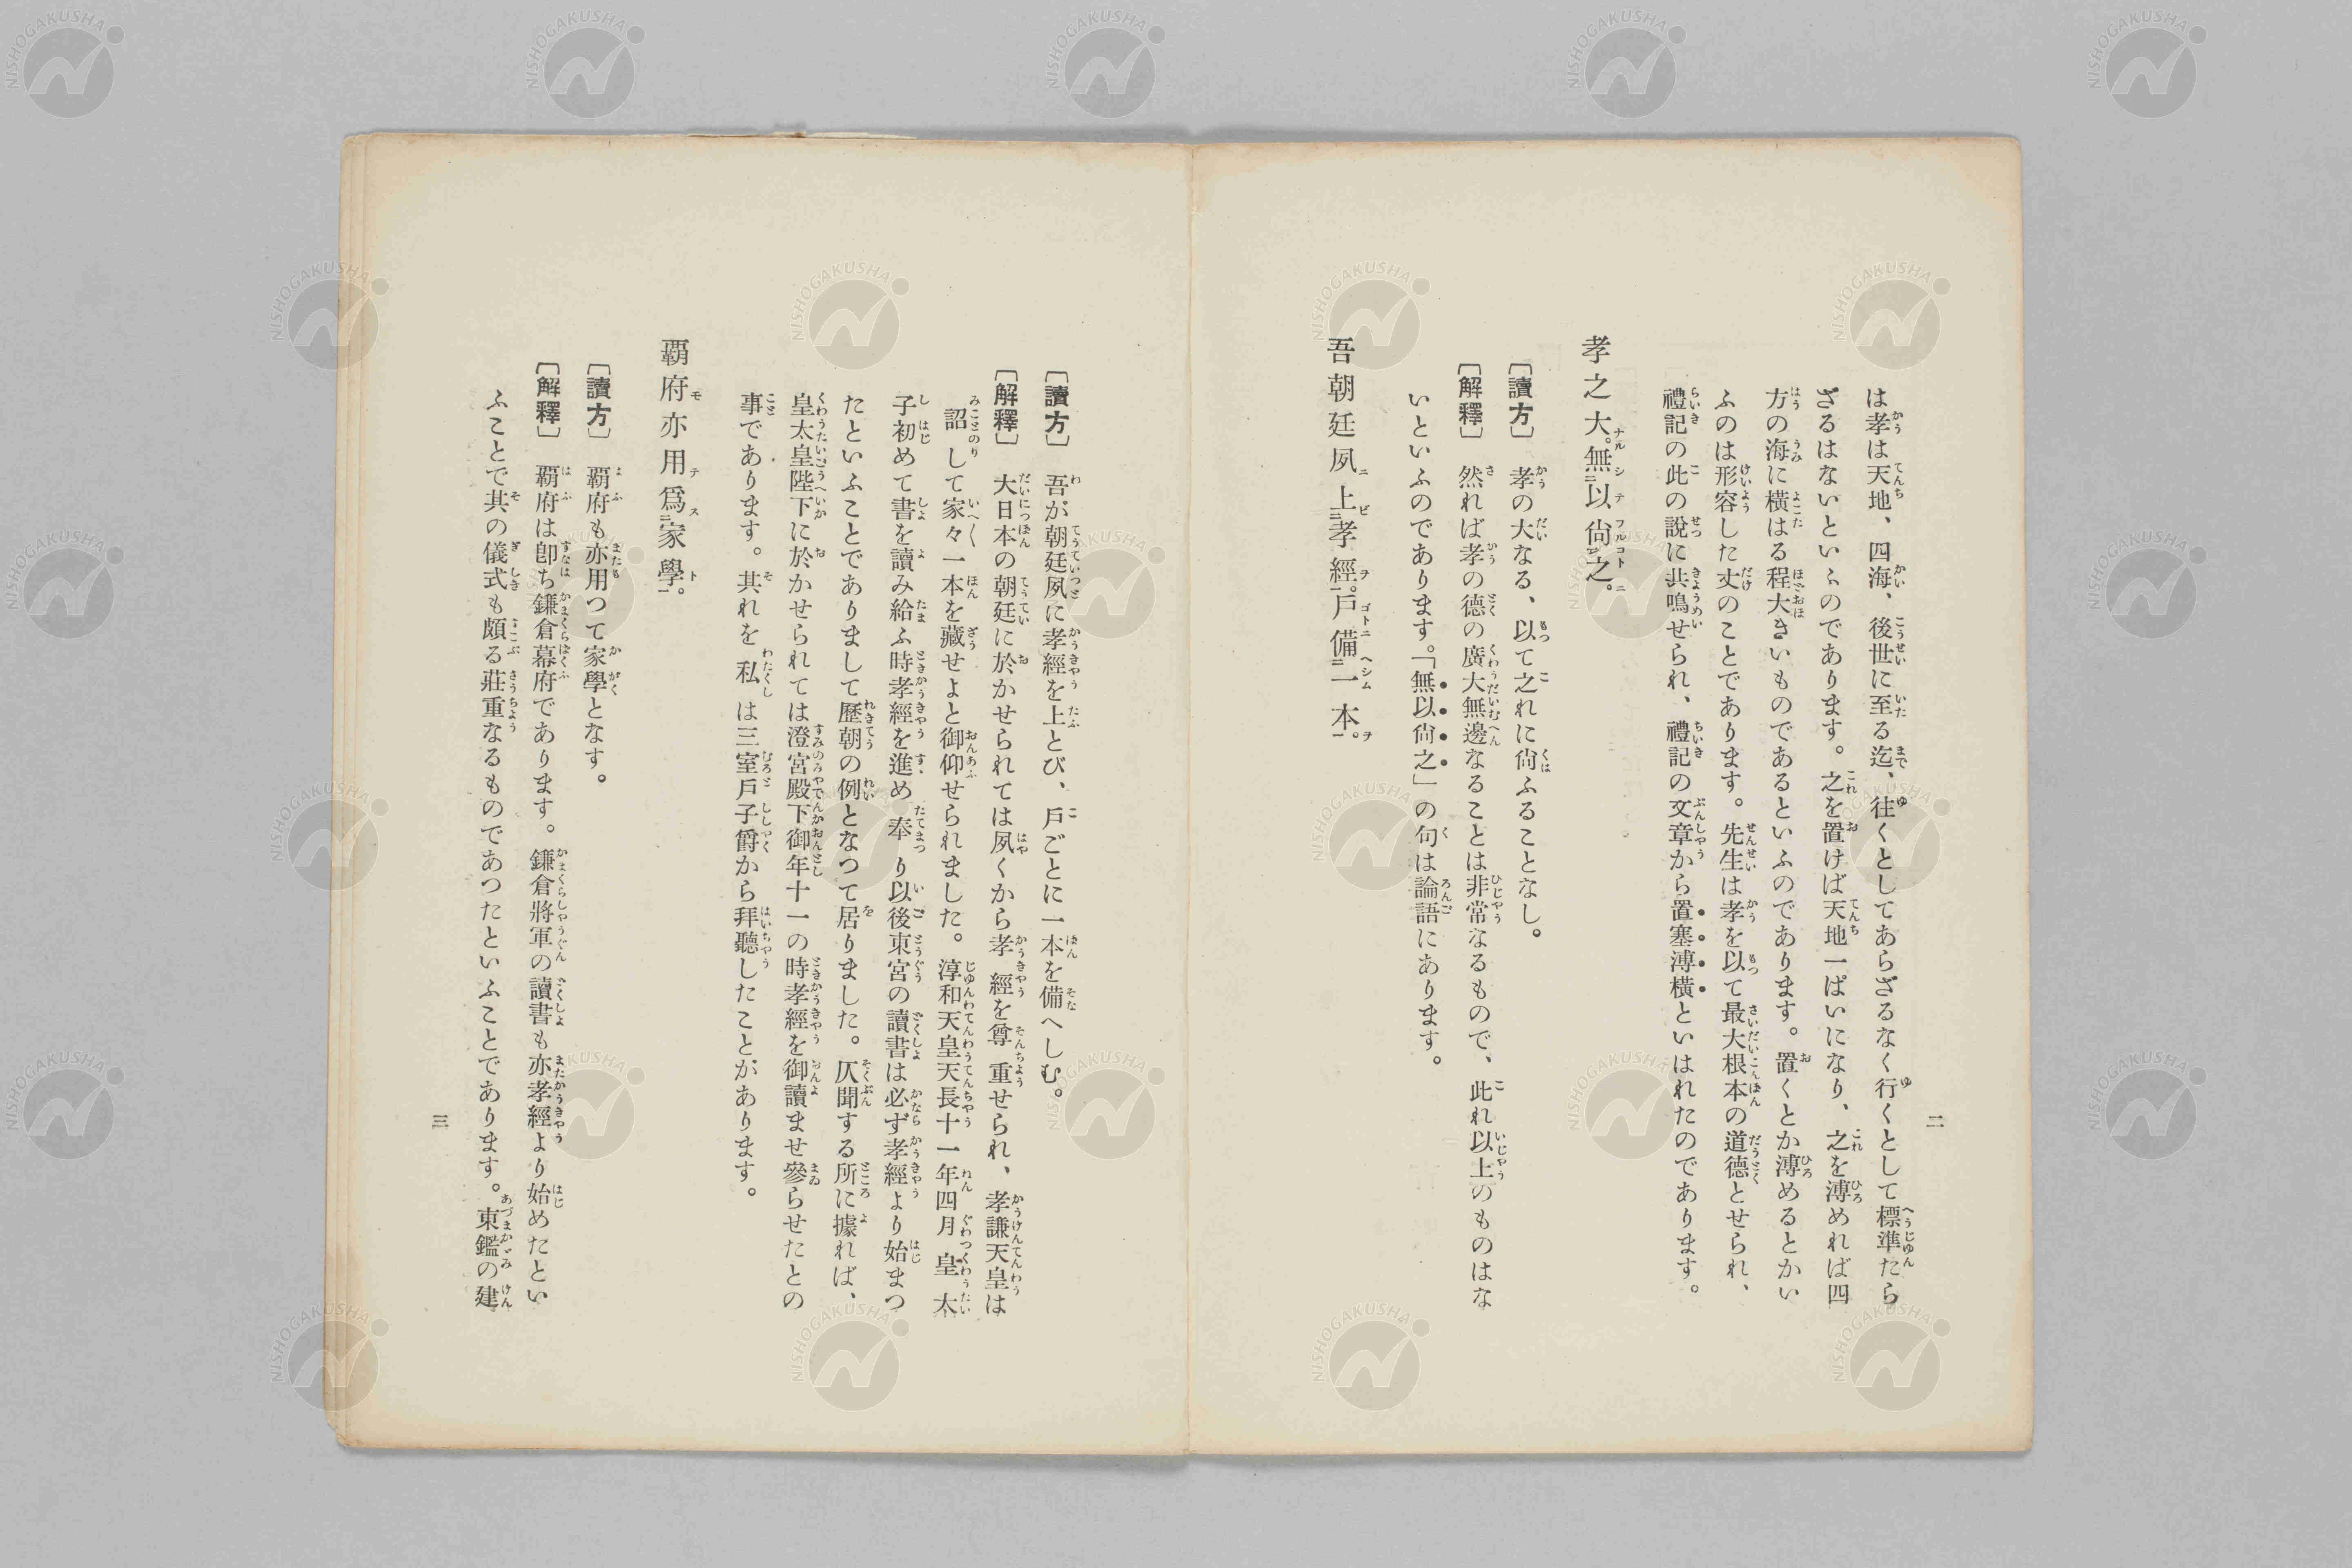 は孝は天地、四海、後世に至る迄、往くとしてあらざるなく行くとして標準たら
ざるはないといふのであります。之を置けば天地一ぱいになり、之を溥めれば四
方の海に横はる程大きいものであるといふのであります。置くとか溥めるとかい
ふのは形容した丈のことであります。先生は孝を以て最大根本の道德とせられ、
禮記の此の說に共鳴せられ、禮記の文章から置塞溥橫といはれたのであります。
孝之大。無以尙之。
〔讀方〕 孝の大なる、以て之れに尙ふることなし。
〔解釋〕 然れば孝の德の廣大無邊なることは非常なるもので、此れ以上のものはな
いといふのであります。「無以尙之」の句は論語にあります。
吾朝廷夙上孝經。戶備一本。
二
〔讀方〕 吾が朝廷夙に孝經を上とび、戶ごとに一本を備へしむ。
〔解釋〕 大日本の朝廷に於かせられては夙くから孝經を尊重せられ、孝謙天皇は
詔して家々一本を藏せよと御仰せられました。淳和天皇天長十一年四月皇太
子初めて書を讀み給ふ時孝經を進め奉り以後東宮の讀書は必ず孝經より始まつ
たといふことでありまして歷朝の例となつて居りました。仄聞する所に據れば、
皇太皇陛下に於かせられては澄宮殿下御年十一の時孝經を御讀ませ參らせたとの
事であります。其れを私は三室戶子爵から拜聽したことがあります。
覇府亦用爲家學。
〔讀方〕 覇府も亦用つて家學となす。
〔解釋〕 覇府は卽ち鎌倉幕府であります。鎌倉將軍の讀書も亦孝經より始めたとい
ふことで其の儀式も頗る莊重なるものであつたといふことであります。東鑑の建
三
NISHOGAKUSHA